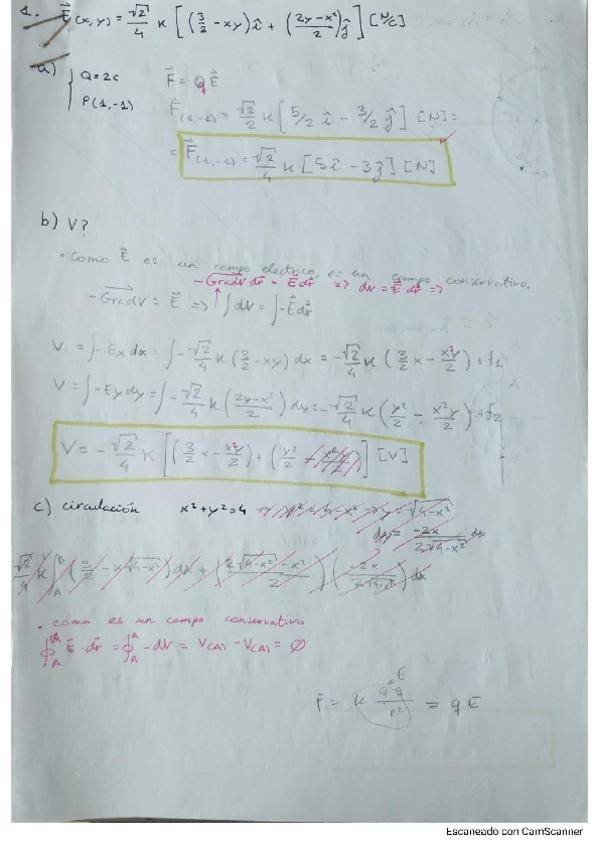 1. E⃗(x,y) = √2/4 K [(3/2 - xy) î + (2y-x²/2) ĵ] [N/C]
a) { Q=2c
P(1,-1)
F⃗ = qE⃗
F⃗(1,-1) = √2/2 K [5/2 î - 3/2 ĵ] [N] =
= F⃗(1,-1) = √2/4 K [5î - 3ĵ] [N]
b) V?
• Como E⃗ es un campo electrico, es un campo conservativo.
-Grad V dr⃗ = E⃗ dr⃗ => dv = E⃗ dr⃗ =>
-Grad V = E⃗ => ∫dV = ∫-E⃗dr⃗
V = ∫-Ex dx = ∫-√2/4 K (3/2 - xy) dx = -√2/4 K (3/2 x - x²y/2) + f1
V = ∫-Ey dy = ∫-√2/4 K (2y-x²/2) dy = -√2/4 K (y²/2 - x²y/2) + f2
V = -√2/4 K [(3/2 x - x²y/2) + (y²/2 - x²y/2)] [V]
c) circulación x²+y²=4 y=√4-x²
dy = -2x/2√4-x² dx
√2/4 K ∫ (3/2 - x√4-x²) dx + (2√4-x² - x²/2) (-2x/2√4-x²) dx
• como es un campo conservativo
∮ E⃗·dr⃗ = ∮ -dV = V(A) - V(A) = ∅
F = K q·q/r² = qE
E
Escaneado con CamScanner